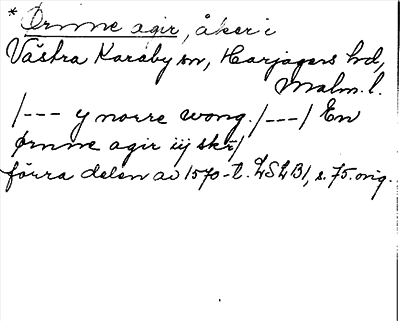 * Ørnne agir, åker i
Västra Karaby sn, Harjagers hd,
Malm. l.
/--- y norre wong. /---/ En
ørnne agir iij skr/
förra delen av 1570-t. LSLB1, s. 75. orig.